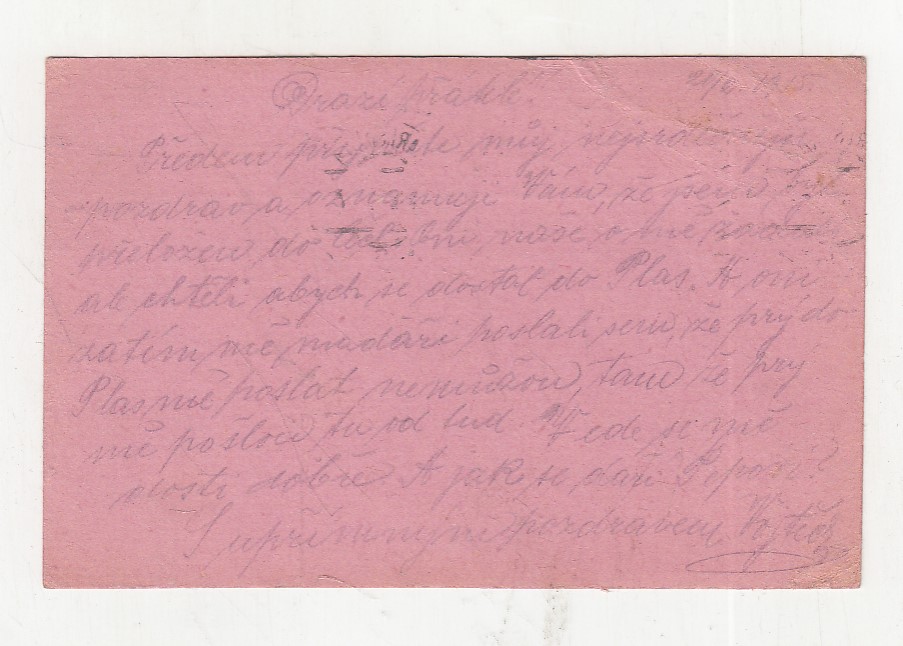 Drazí přátelé! 1915.
Předem přijměte můj nejsrdečnější
pozdrav a oznamuji Vám, že jsem byl
přeložen do
ale chtěli abych se dostal do Plas. A oni
zatím mě maďáři poslali sem, že prý do
Plas mě poslat nemůžou, tam že prý
mě pošlou tu od tud. Vede se mě
dosti dobře. A jak se daří Pepovi?
S upřímným pozdravem Vojtěch